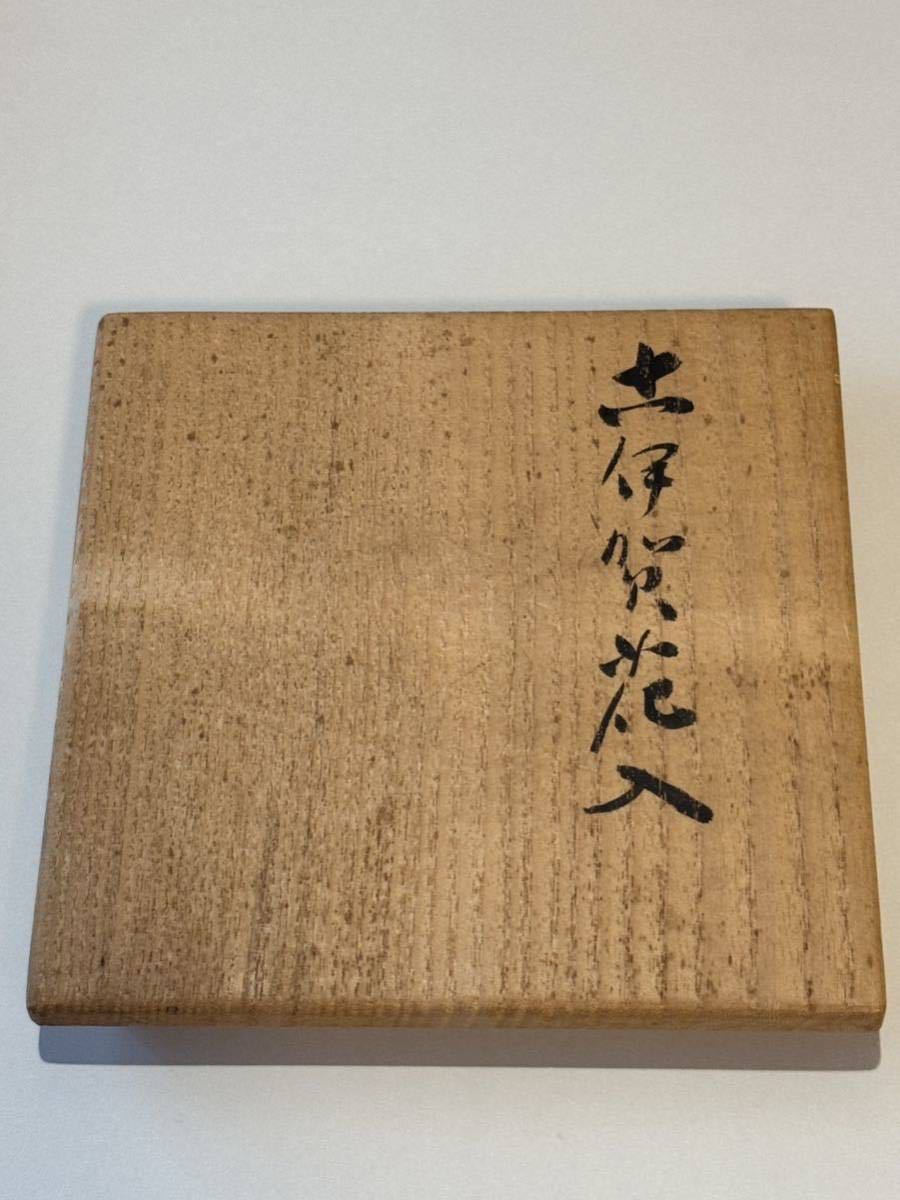 古伊賀花入